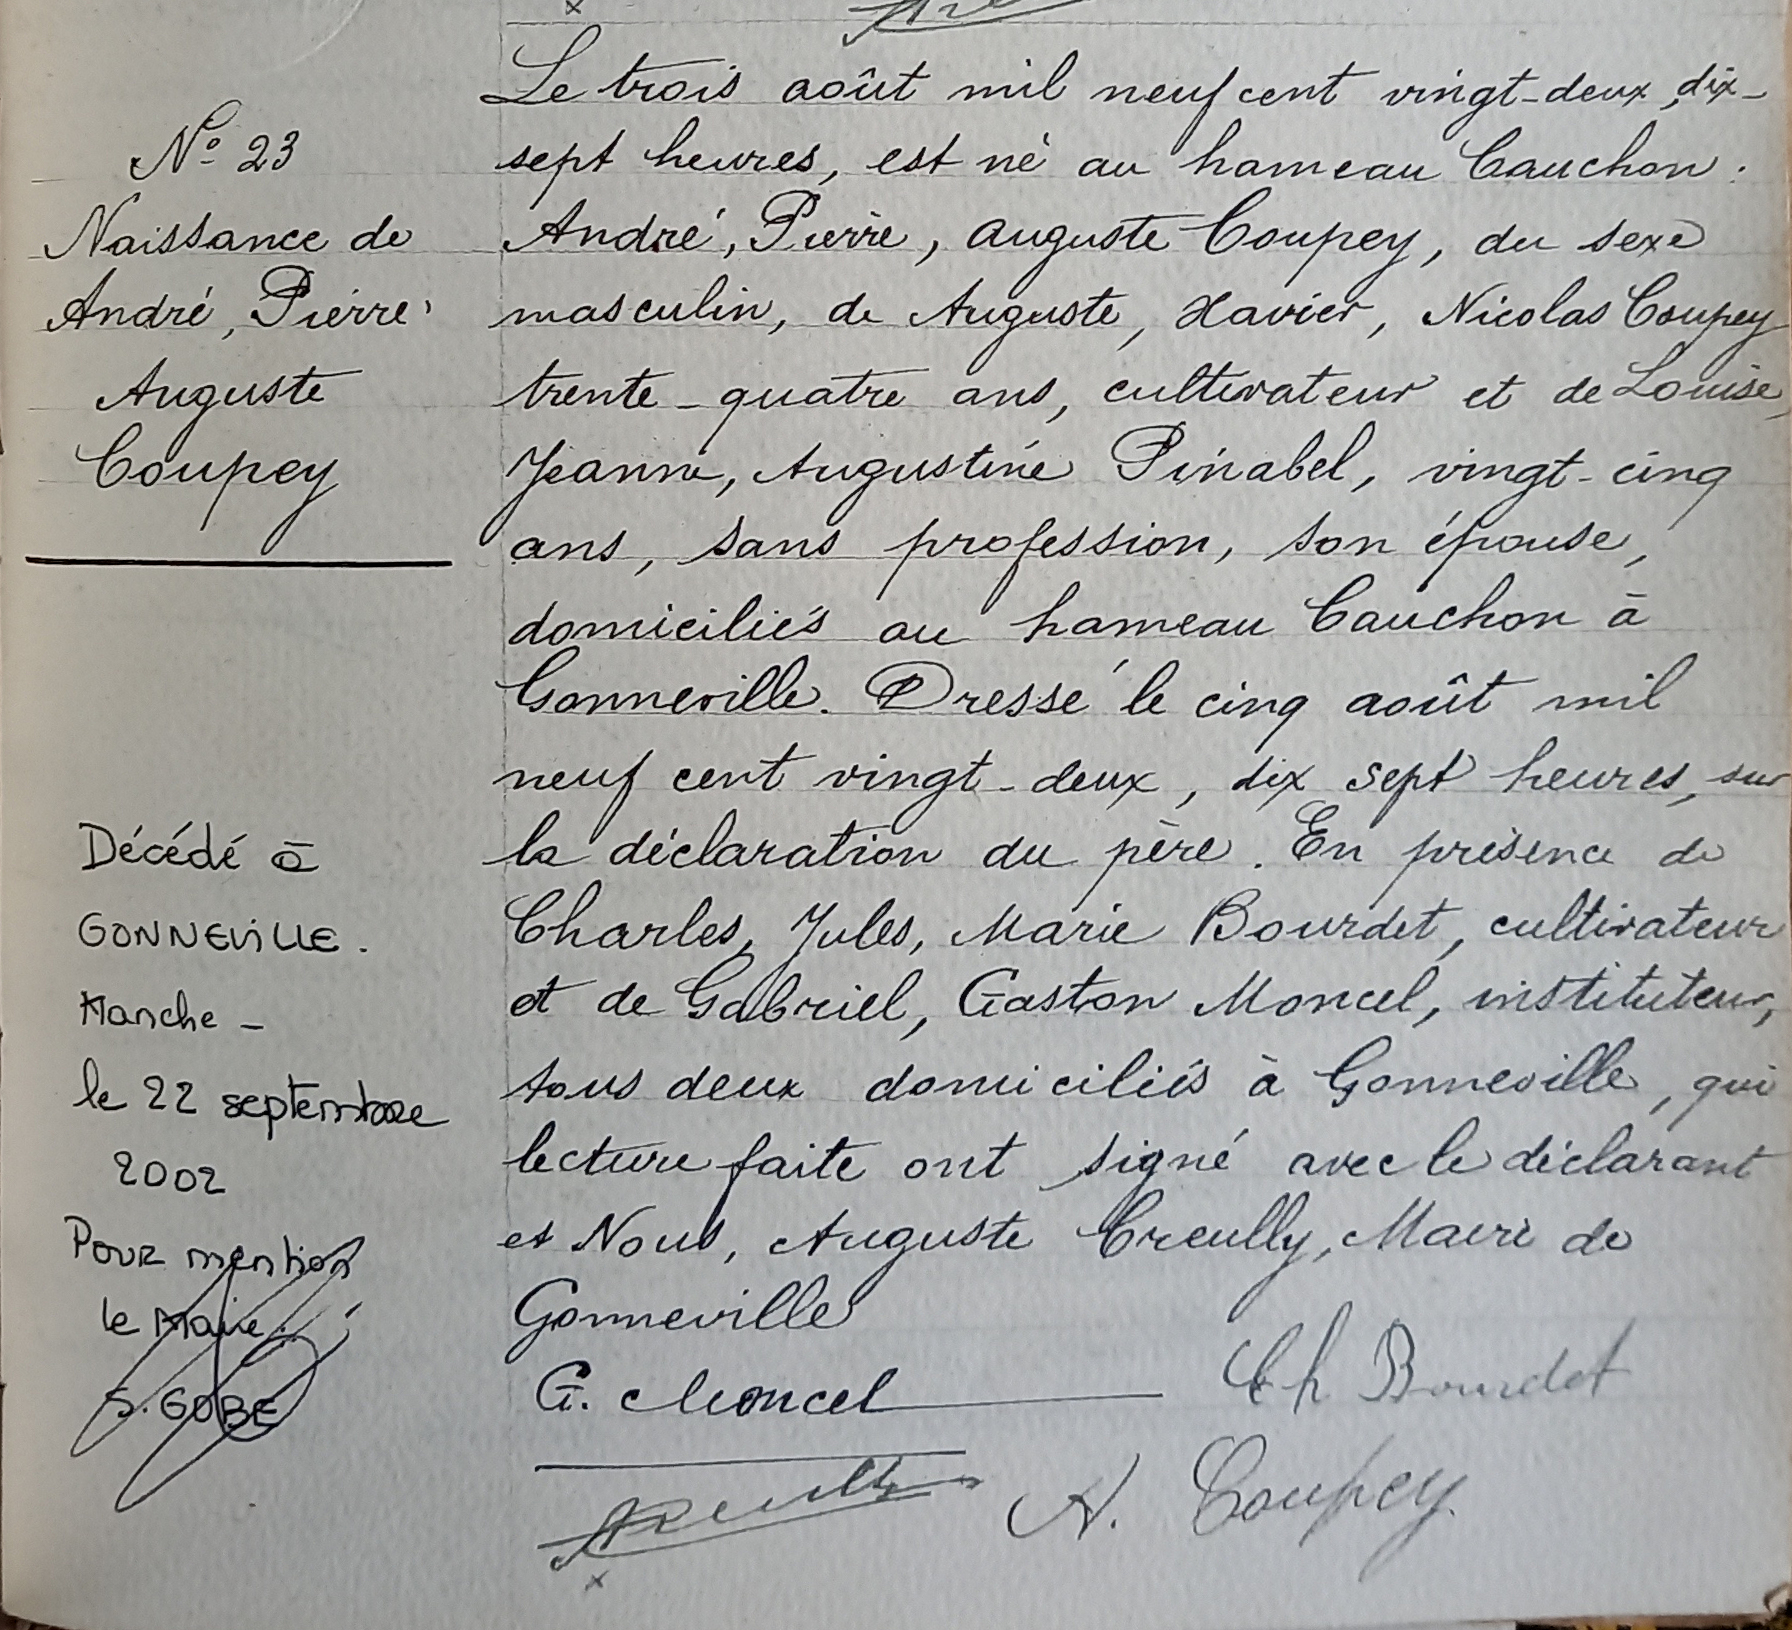 N° 23
Naissance de
André, Pierre,
Auguste
Coupey
Le trois août mil neuf cent vingt-deux, dix-
sept heures, est né au hameau Cauchon :
André, Pierre, Auguste Coupey, du sexe
masculin, de Auguste, Xavier, Nicolas Coupey
trente-quatre ans, cultivateur et de Louise,
Jeanne, Augustine Pinabel, vingt-cinq
ans, sans profession, son épouse,
domiciliés au hameau Cauchon à
Gonneville. Dressé le cinq août mil
neuf cent vingt-deux, dix sept heures, sur
la déclaration du père. En présence de
Charles, Jules, Marie Bourdet, cultivateur
et de Gabriel, Gaston Moncel, instituteur,
tous deux domiciliés à Gonneville, qui
lecture faite ont signé avec le déclarant
et Nous, Auguste Creully, Maire de
Gonneville
G. Moncel Ch Bourdet
A. Coupey.
Décédé à
GONNEVILLE.
Manche -
le 22 septembre
2002
Pour mention
le Maire.
S. GOBE